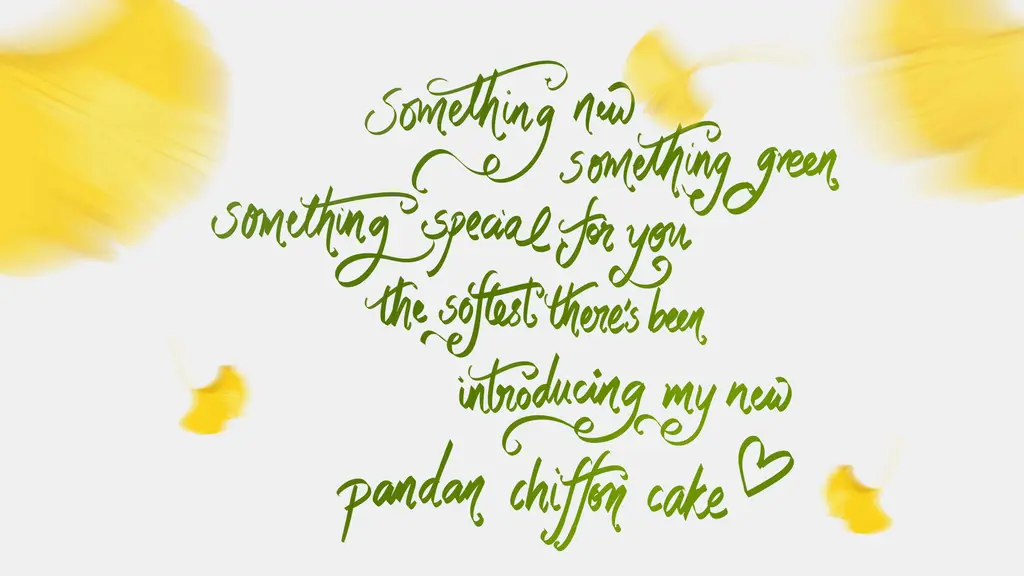 something new
something green
something special for you
the softest there's been
introducing my new
pandan chiffon cake